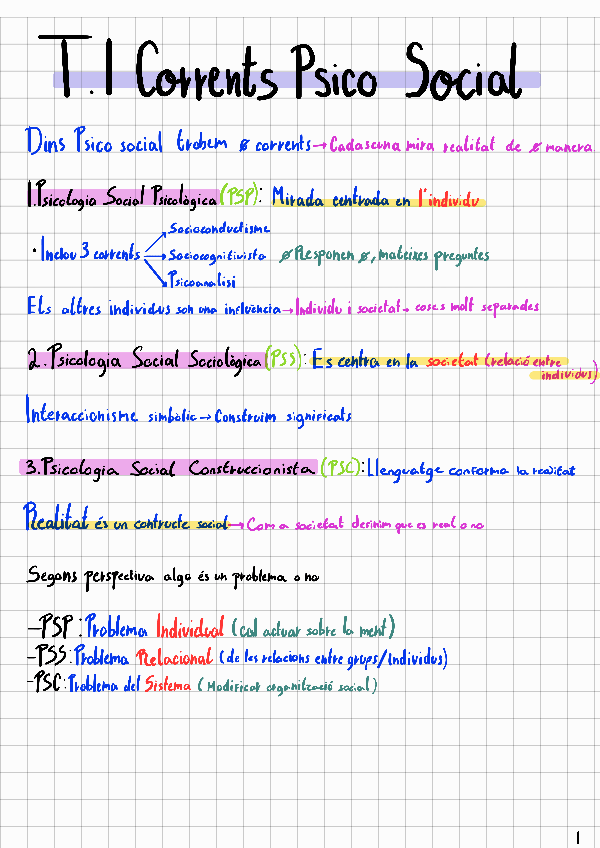 T.1 Corrents Psico Social
Dins Psico social trobem ≠ corrents → Cadascuna mira realitat de ≠ manera
1. Psicologia Social Psicològica (PSP): Mirada centrada en l'individu
· Inclou 3 corrents
Socioconductisme
Sociocognitivista
Psicoanalisi
≠ Responen ≠, mateixes preguntes
Els altres individus son una influència → Individu i societat → coses molt separades
2. Psicologia Social Sociològica (PSS): Es centra en la societat (relació entre
individus)
Interaccionisme simbòlic → Construim significats
3. Psicologia Social Construccionista (PSC): Llenguatge conforma la realitat
Realitat és un contructe social → Com a societat definim que es real o no
Segons perspectiva algo és un problema o no
- PSP: Problema Individual (cal actuar sobre la ment)
- PSS: Problema Relacional (de les relacions entre grups/individus)
- PSC: Problema del Sistema (Modificar organització social)
1